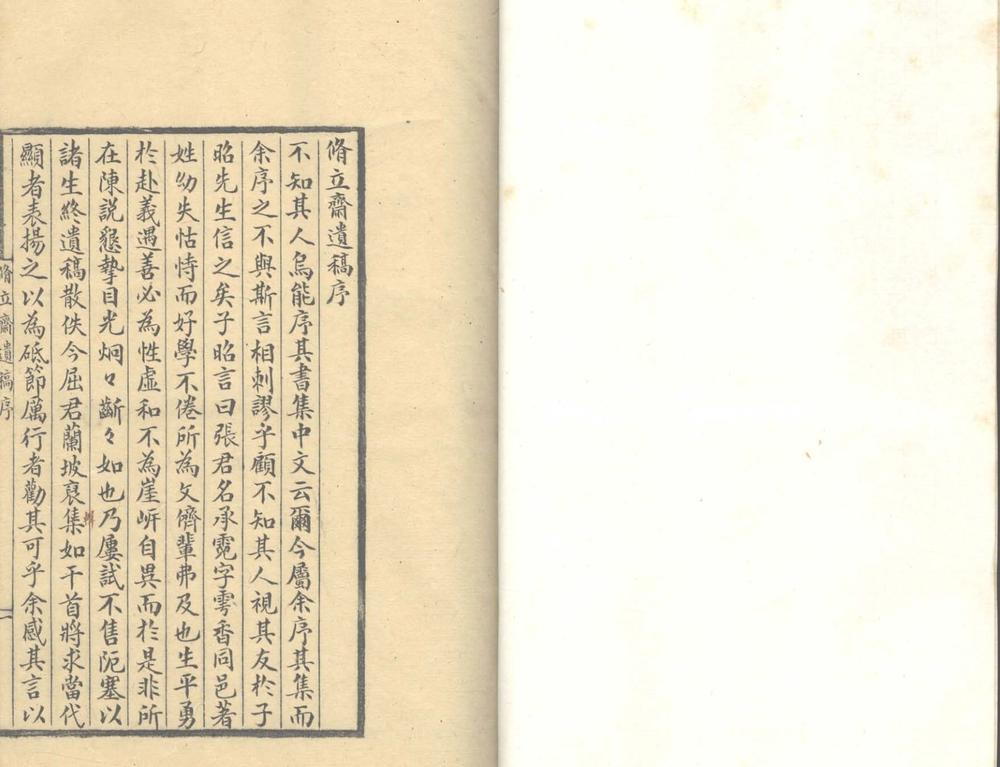 脩立齋遺稿序
不知其人烏能序其書集中文云爾今屬余序其集而
余序之不與斯言相刺謬乎顧不知其人視其友於子
昭先生信之矣子昭言曰張君名承霓字雩香同邑著
姓幼失怙恃而好學不倦所為文儕輩弗及也生平勇
於赴義遇善必為性虛和不為崖岸自異而於是非所
在陳說懇摯目光炯々齗々如也乃屢試不售阨塞以
諸生終遺稿散佚今屈君蘭坡裒集如干首將求當代
顯者表揚之以為砥節厲行者勸其可乎余感其言以
脩立齋遺稿序
一